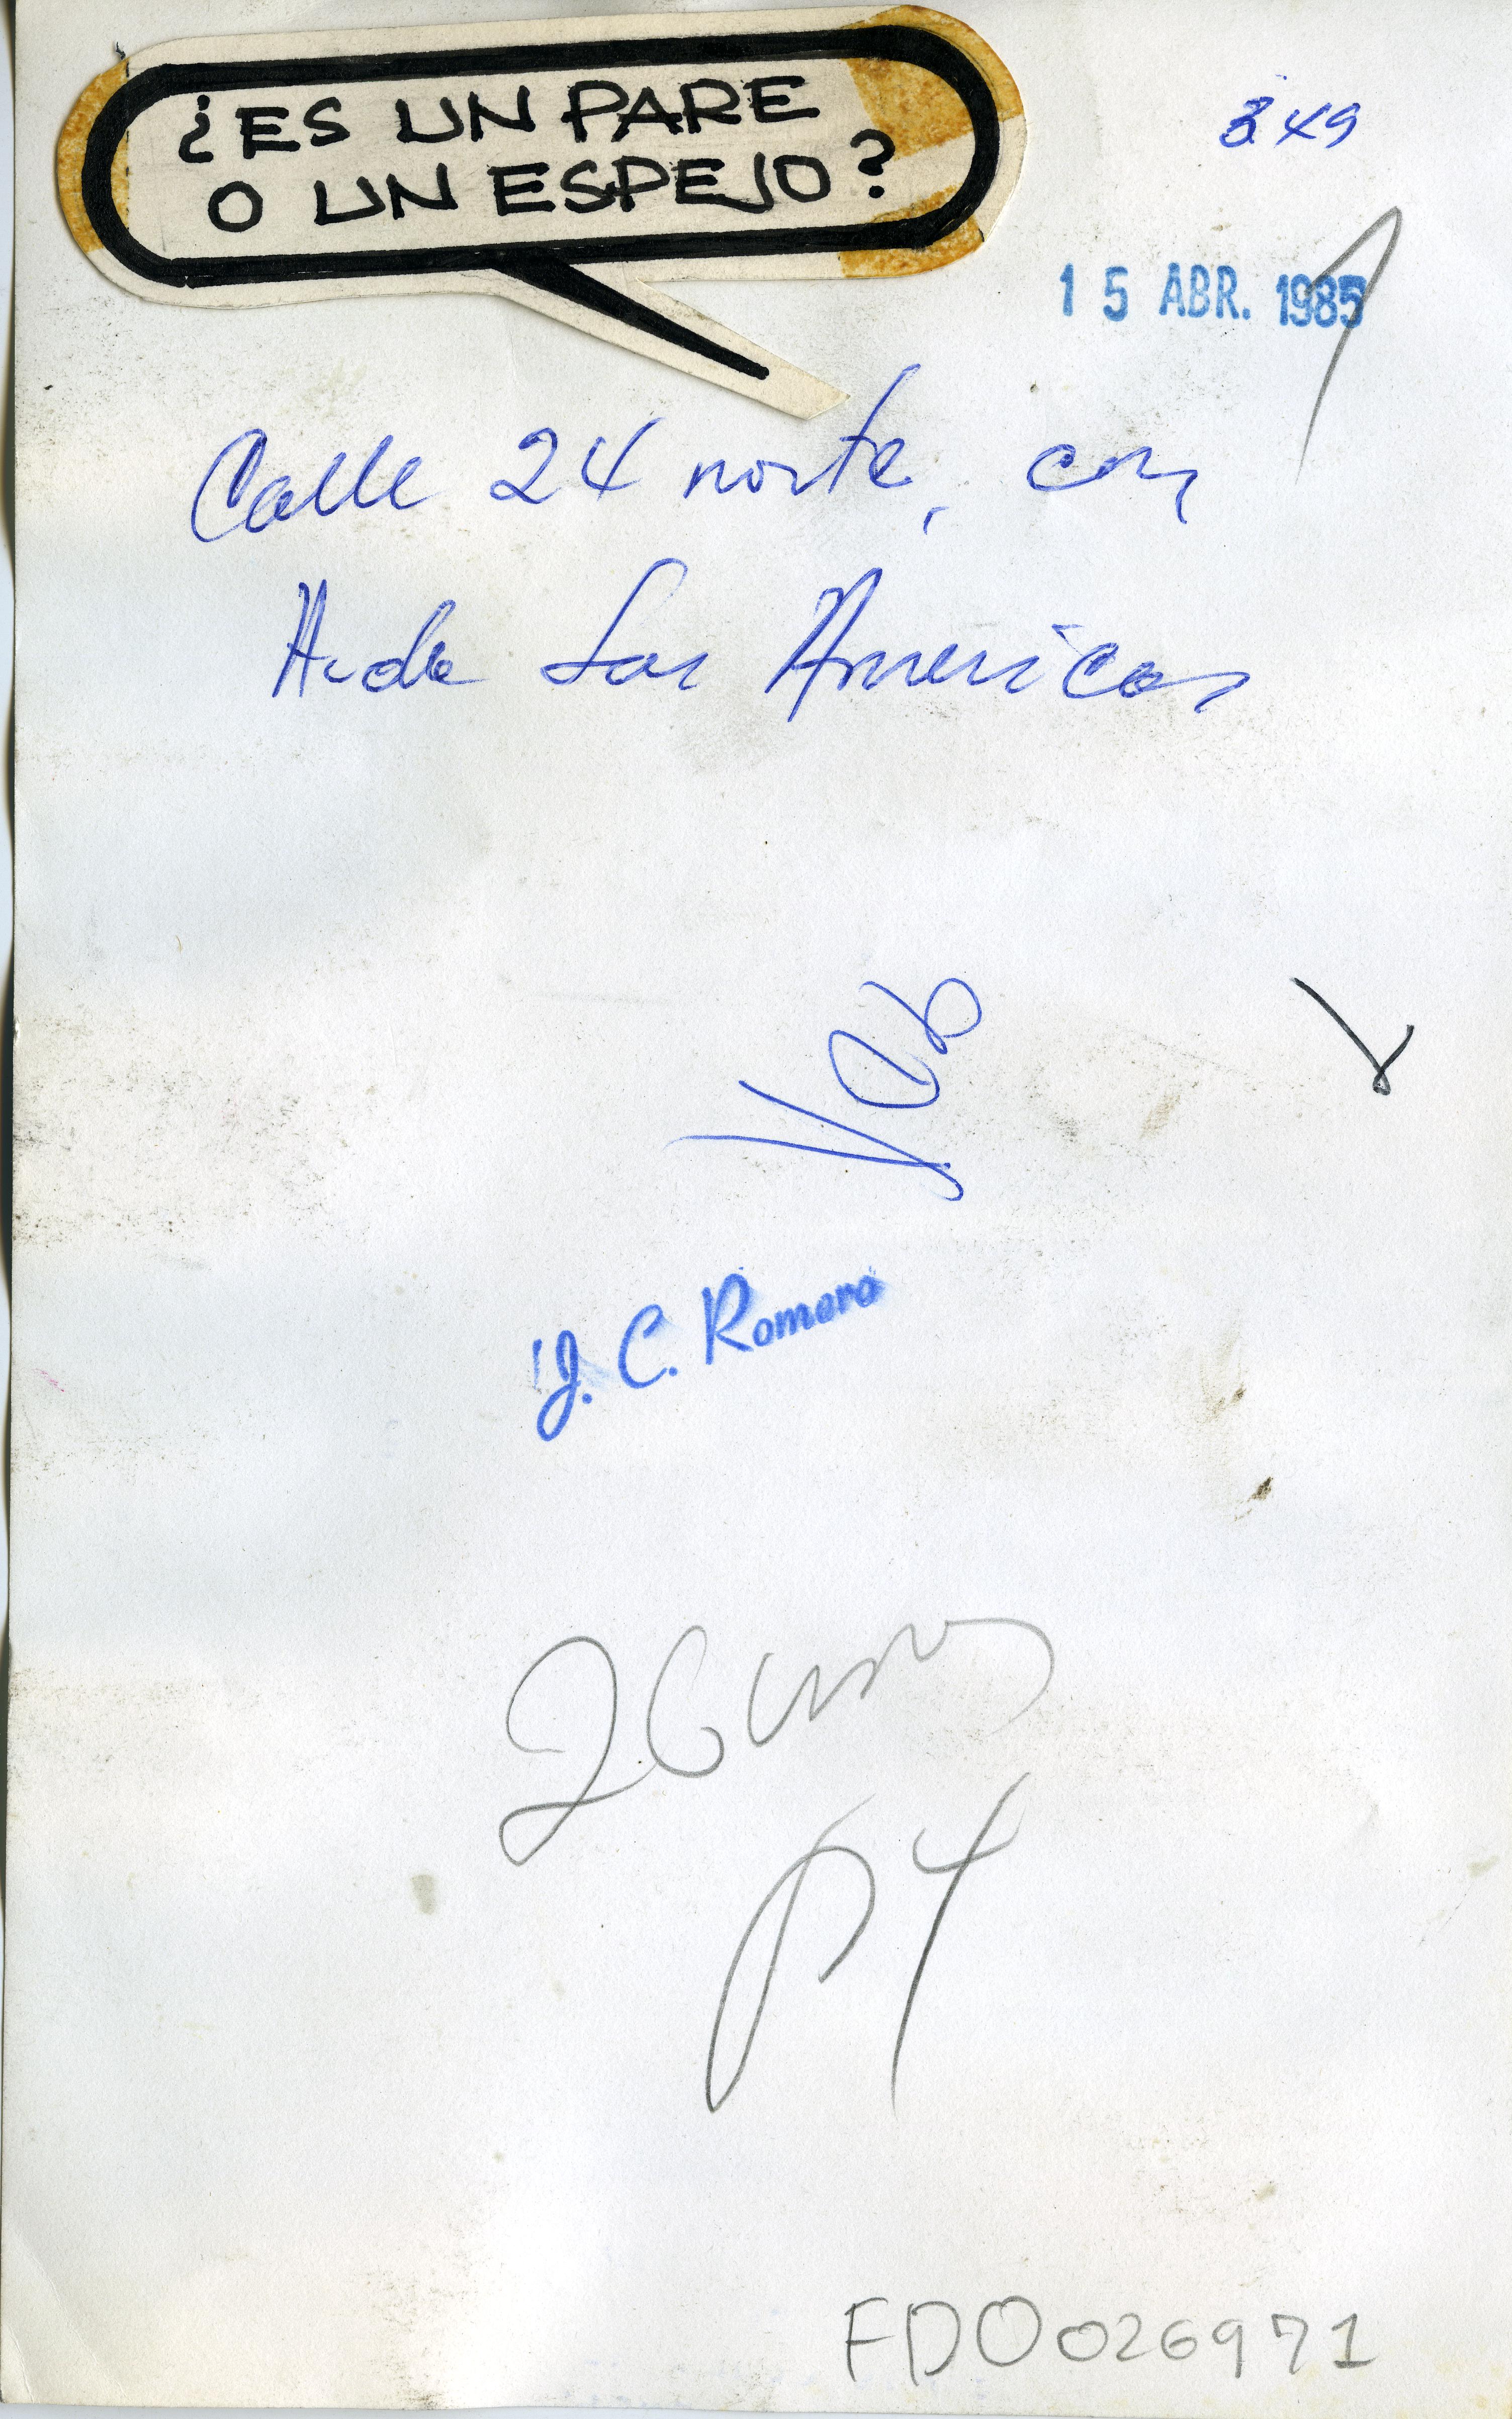 ¿ES UN PARE
O UN ESPEJO?
15 ABR. 1985
Calle 24 norte, con
Avda Las Americas
J. C. Romero
P4
FDO026971